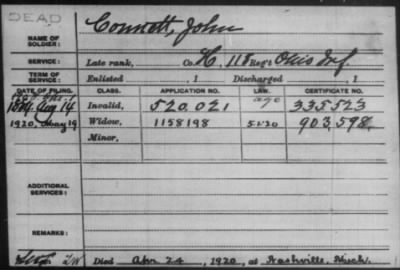 DEAD
NAME OF SOLDIER: Connett, John
SERVICE: Late rank, Co. H, 118 Reg't Ohio Inf
TERM OF SERVICE: Enlisted , 1 Discharged , 1
DATE OF FILING. CLASS. APPLICATION NO. LAW. CERTIFICATE NO.
Aug 14 Invalid, 520,021 335523
1920, May 19 Widow, 1158198 5-1-20 903,598.
Minor,
ADDITIONAL SERVICES:
REMARKS:
Died Apr 24, 1920, at Nashville, Mich.